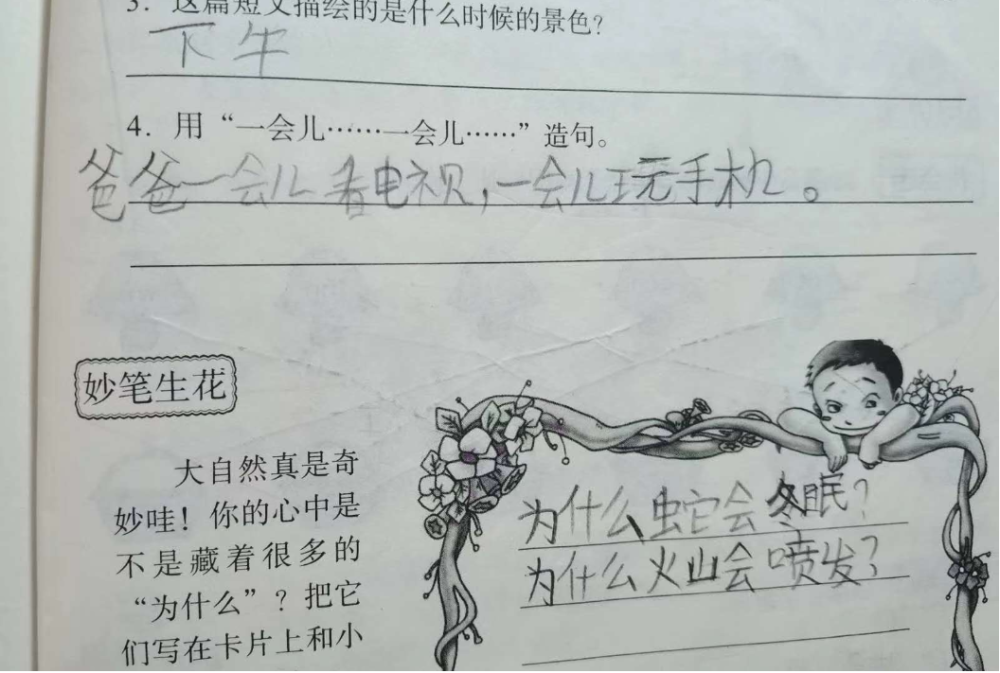 3. 这篇短文描绘的是什么时候的景色？
下午
4. 用“一会儿……一会儿……”造句。
爸爸一会儿看电视，一会儿玩手机。
妙笔生花
大自然真是奇
妙哇！你的心中是
不是藏着很多的
“为什么”？把它
们写在卡片上和小
为什么蛇会冬眠？
为什么火山会喷发？